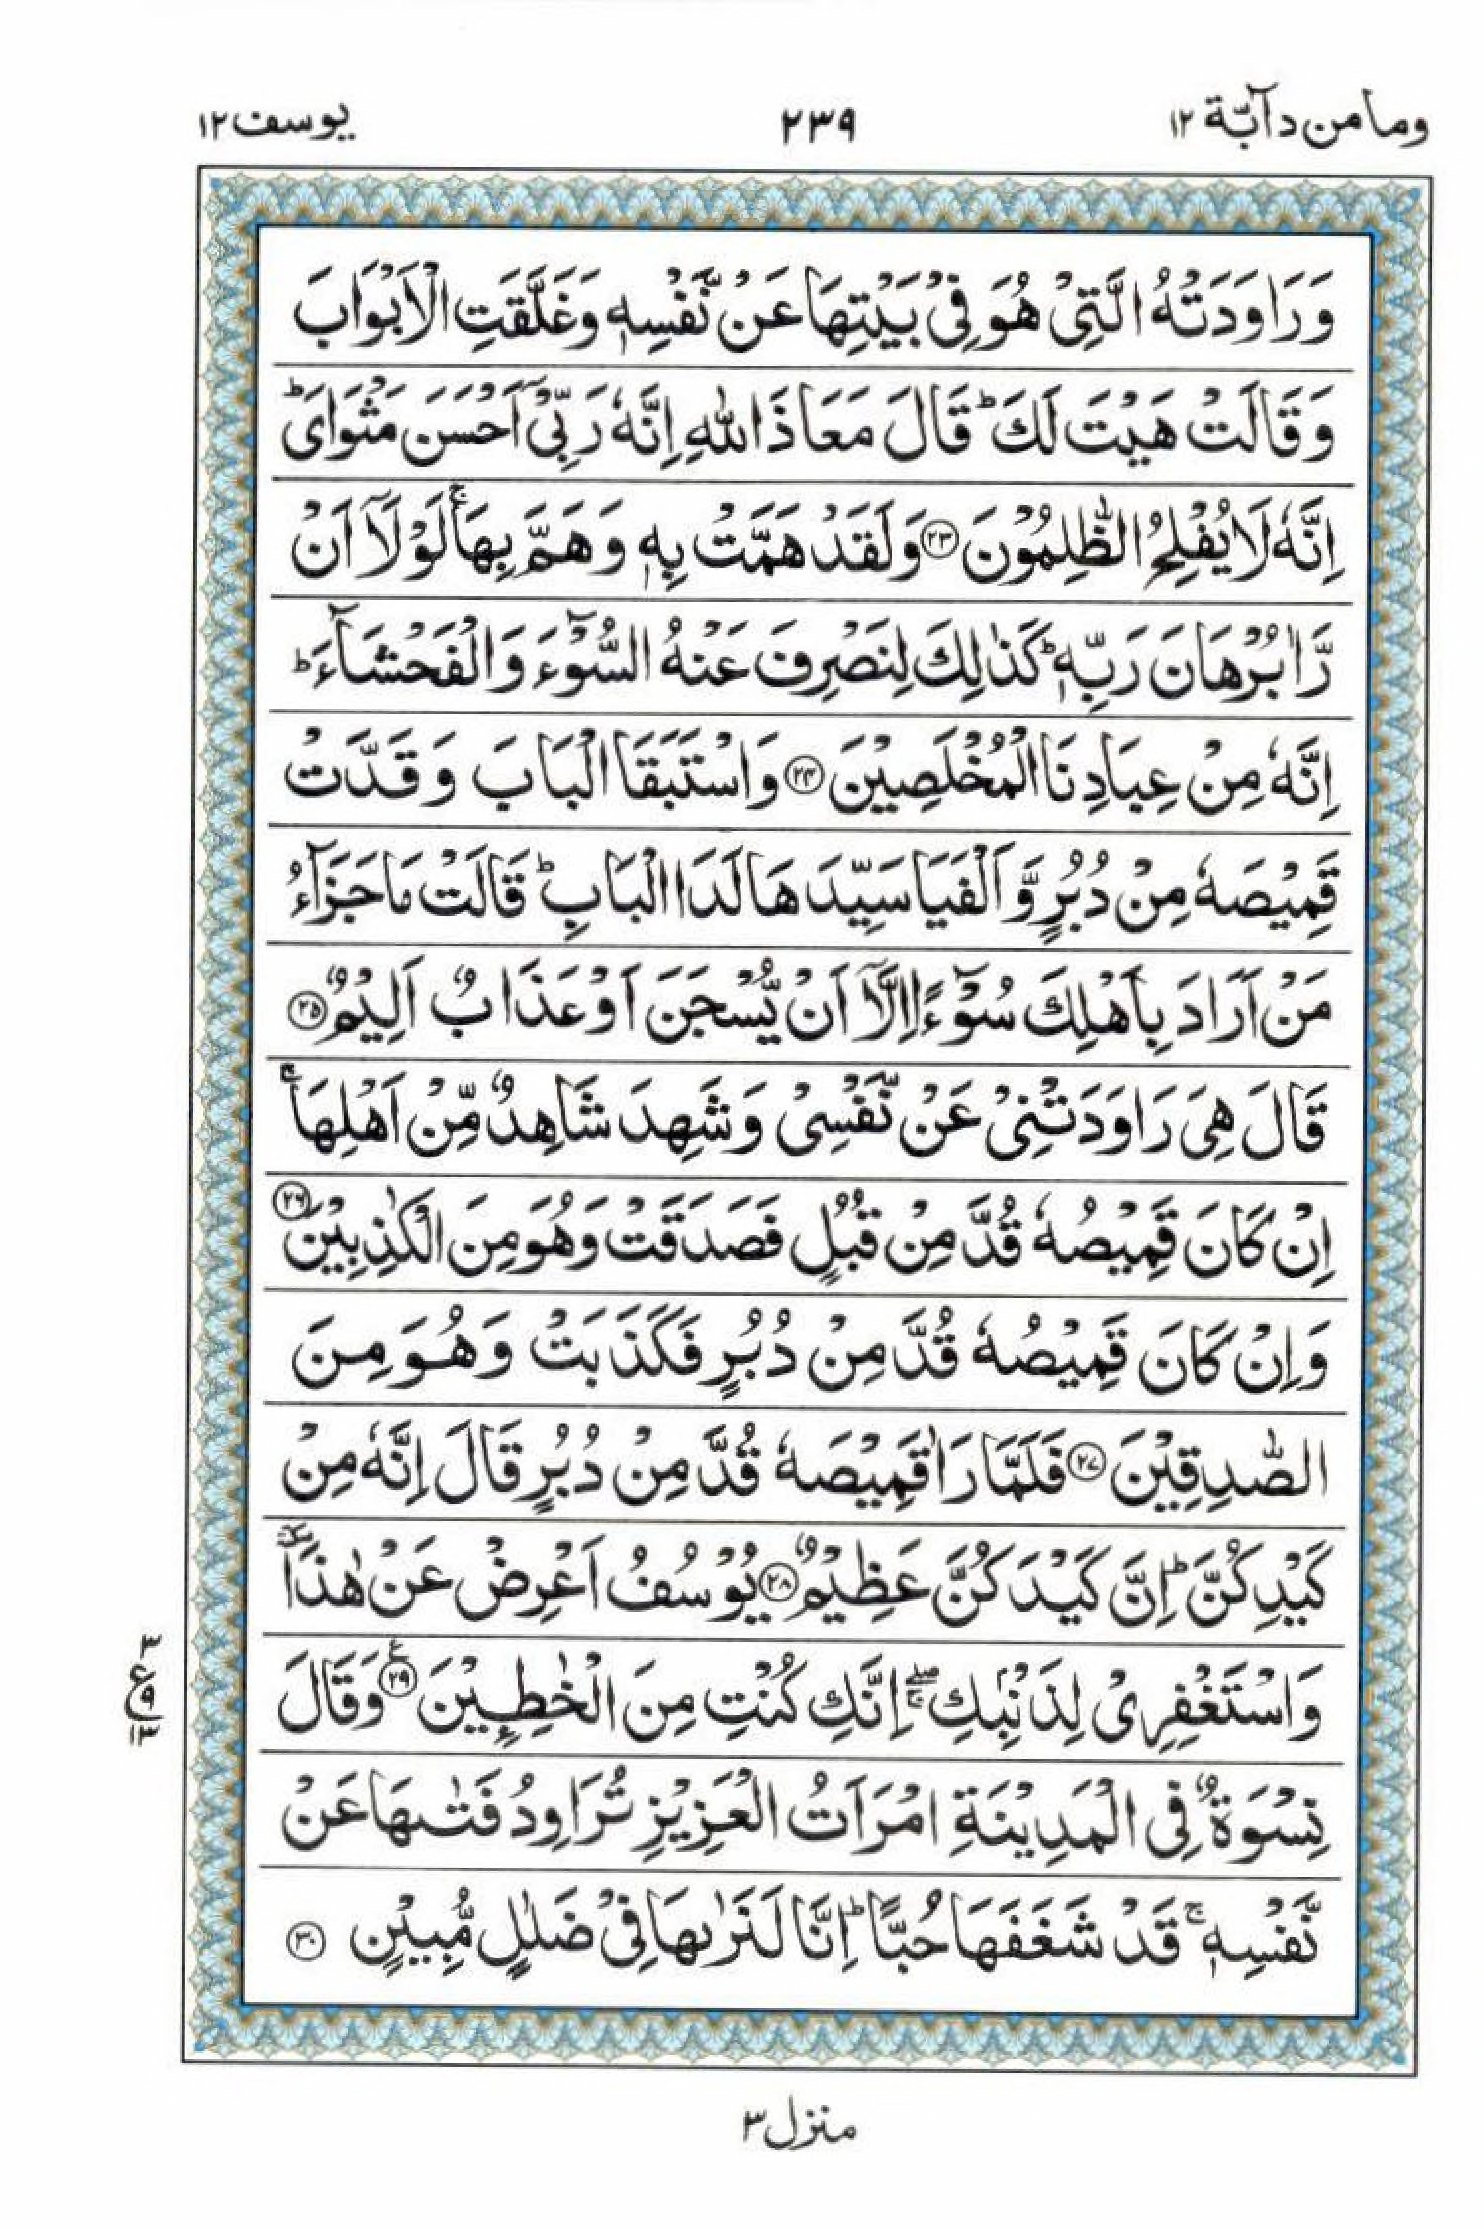 وما من دآبّة ١٢
٢٣٩
يوسف ١٢
وَرَاوَدَتْهُ الَّتِیْ هُوَ فِیْ بَیْتِهَا عَنْ نَّفْسِهٖ وَغَلَّقَتِ الْاَبْوَابَ
وَقَالَتْ هَیْتَ لَكَ ؕ قَالَ مَعَاذَ اللّٰهِ اِنَّهٗ رَبِّیْۤ اَحْسَنَ مَثْوَایَ ؕ
اِنَّهٗ لَا یُفْلِحُ الظّٰلِمُوْنَ ﴿۲۳﴾ وَلَقَدْ هَمَّتْ بِهٖ وَهَمَّ بِهَا ۚ لَوْ لَاۤ اَنْ
رَّاٰ بُرْهَانَ رَبِّهٖ ؕ كَذٰلِكَ لِنَصْرِفَ عَنْهُ السُّوْٓءَ وَالْفَحْشَآءَ ؕ
اِنَّهٗ مِنْ عِبَادِنَا الْمُخْلَصِیْنَ ﴿۲۴﴾ وَاسْتَبَقَا الْبَابَ وَقَدَّتْ
قَمِیْصَهٗ مِنْ دُبُرٍ وَّ اَلْفَیَا سَیِّدَهَا لَدَا الْبَابِ ؕ قَالَتْ مَا جَزَآءُ
مَنْ اَرَادَ بِاَهْلِكَ سُوْٓءًا اِلَّاۤ اَنْ یُّسْجَنَ اَوْ عَذَابٌ اَلِیْمٌ ﴿۲۵﴾
قَالَ هِیَ رَاوَدَتْنِیْ عَنْ نَّفْسِیْ وَشَهِدَ شَاهِدٌ مِّنْ اَهْلِهَا ۚ
اِنْ كَانَ قَمِیْصُهٗ قُدَّ مِنْ قُبُلٍ فَصَدَقَتْ وَهُوَ مِنَ الْكٰذِبِیْنَ ﴿۲۶﴾
وَاِنْ كَانَ قَمِیْصُهٗ قُدَّ مِنْ دُبُرٍ فَكَذَبَتْ وَهُوَ مِنَ
الصّٰدِقِیْنَ ﴿۲۷﴾ فَلَمَّا رَاٰ قَمِیْصَهٗ قُدَّ مِنْ دُبُرٍ قَالَ اِنَّهٗ مِنْ
كَیْدِكُنَّ ؕ اِنَّ كَیْدَكُنَّ عَظِیْمٌ ﴿۲۸﴾ یُوْسُفُ اَعْرِضْ عَنْ هٰذَا ٚ
وَاسْتَغْفِرِیْ لِذَنْۢبِكِ ۖۚ اِنَّكِ كُنْتِ مِنَ الْخٰطِـِٕیْنَ ﴿۲۹﴾ وَقَالَ
نِسْوَةٌ فِی الْمَدِیْنَةِ امْرَاَتُ الْعَزِیْزِ تُرَاوِدُ فَتٰىهَا عَنْ
نَّفْسِهٖ ۚ قَدْ شَغَفَهَا حُبًّا ؕ اِنَّا لَنَرٰىهَا فِیْ ضَلٰلٍ مُّبِیْنٍ ﴿۳۰﴾
٣
ع ٩
١٣
منزل ٣